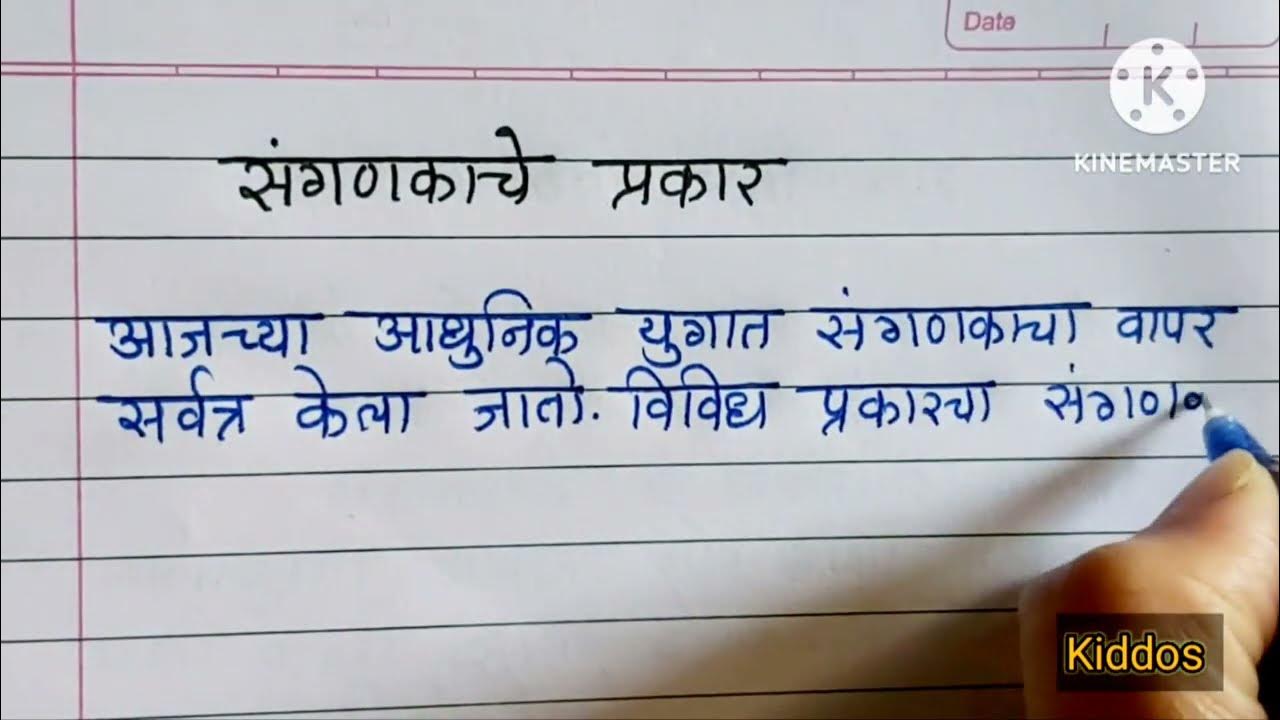 Date
KINEMASTER
संगणकाचे प्रकार
आजच्या आधुनिक युगात संगणकाचा वापर
सर्वत्र केला जातो. विविध प्रकारचा
Kiddos